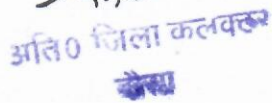 अति० जिला कलक्टर